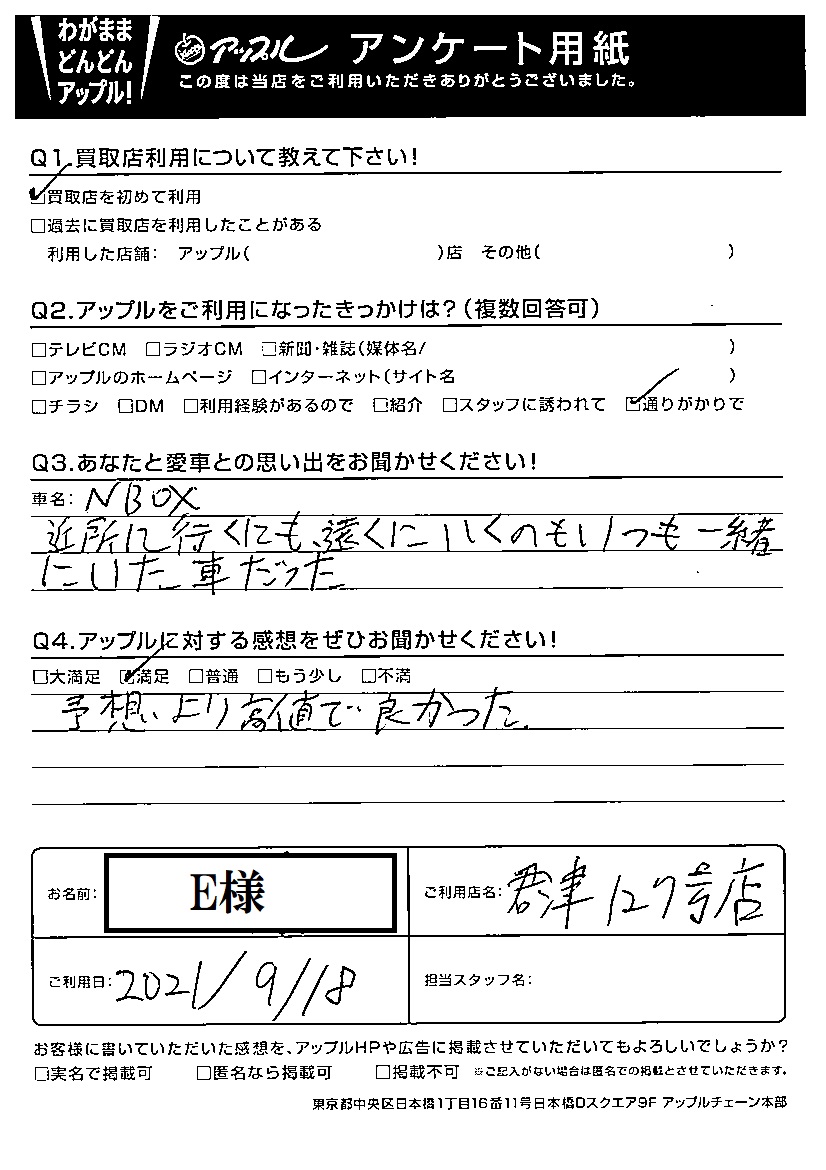 わがまま
どんどん
アップル!
アップル アンケート用紙
この度は当店をご利用いただきありがとうございました。
Q1.買取店利用について教えて下さい!
☑買取店を初めて利用
□過去に買取店を利用したことがある
利用した店舗: アップル( )店 その他( )
Q2.アップルをご利用になったきっかけは?(複数回答可)
□テレビCM □ラジオCM □新聞・雑誌(媒体名/ )
□アップルのホームページ □インターネット(サイト名 )
□チラシ □DM □利用経験があるので □紹介 □スタッフに誘われて ☑通りがかりで
Q3.あなたと愛車との思い出をお聞かせください!
車名: NBOX
近所に行くにも、遠くにいくのもいつも一緒
にいた車だった
Q4.アップルに対する感想をぜひお聞かせください!
□大満足 ☑満足 □普通 □もう少し □不満
予想より高値で良かった。
お名前: E様
ご利用店名: 君津127号店
ご利用日: 2021/9/18
担当スタッフ名:
お客様に書いていただいた感想を、アップルHPや広告に掲載させていただいてもよろしいでしょうか?
□実名で掲載可 □匿名なら掲載可 □掲載不可 ※ご記入がない場合は匿名での掲載とさせていただきます。
東京都中央区日本橋1丁目16番11号日本橋Dスクエア9F アップルチェーン本部